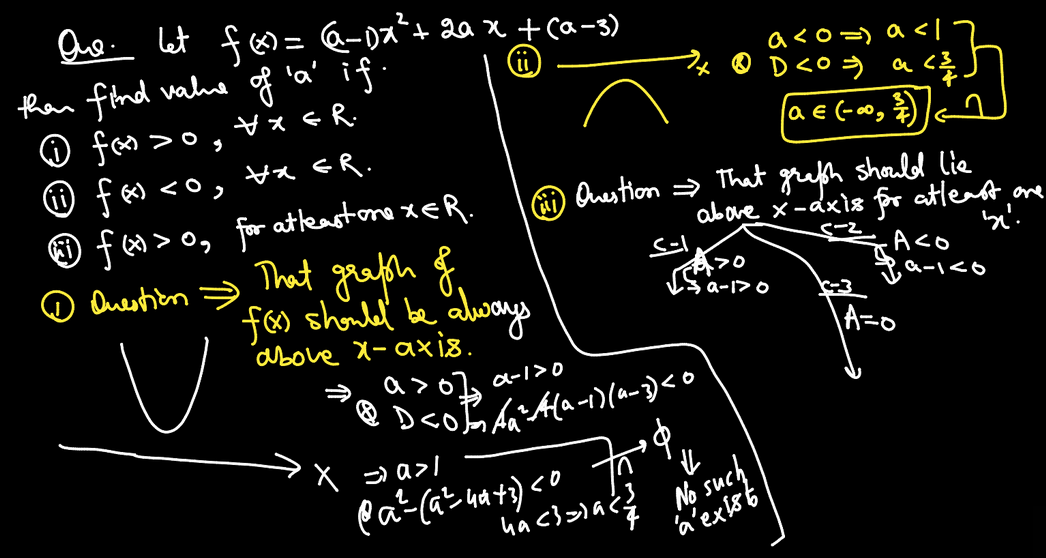 Que. Let f(x) = (a-1)x² + 2ax + (a-3)
then find value of 'a' if.
(i) f(x) > 0, ∀ x ∈ R.
(ii) f(x) < 0, ∀ x ∈ R.
(iii) f(x) > 0, for atleast one x ∈ R.
(i) Question ⇒ That graph of
f(x) should be always
above x-axis.
⇒ a > 0 ⇒ a-1 > 0
& D < 0 ⇒ 4a² - 4(a-1)(a-3) < 0
X
⇒ a > 1
& a² - (a² - 4a + 3) < 0
4a < 3 ⇒ a < 3/4
∩ → ϕ
⇓
No such
'a' exists
(ii) x
a < 0 ⇒ a < 1
& D < 0 ⇒ a < 3/4
a ∈ (-∞, 3/4) ← ∩
(iii) Question ⇒ That graph should lie
above x-axis for atleast one
'x'.
C-1 A > 0
↳ a-1 > 0
C-2 A < 0
↳ a-1 < 0
C-3
A = 0